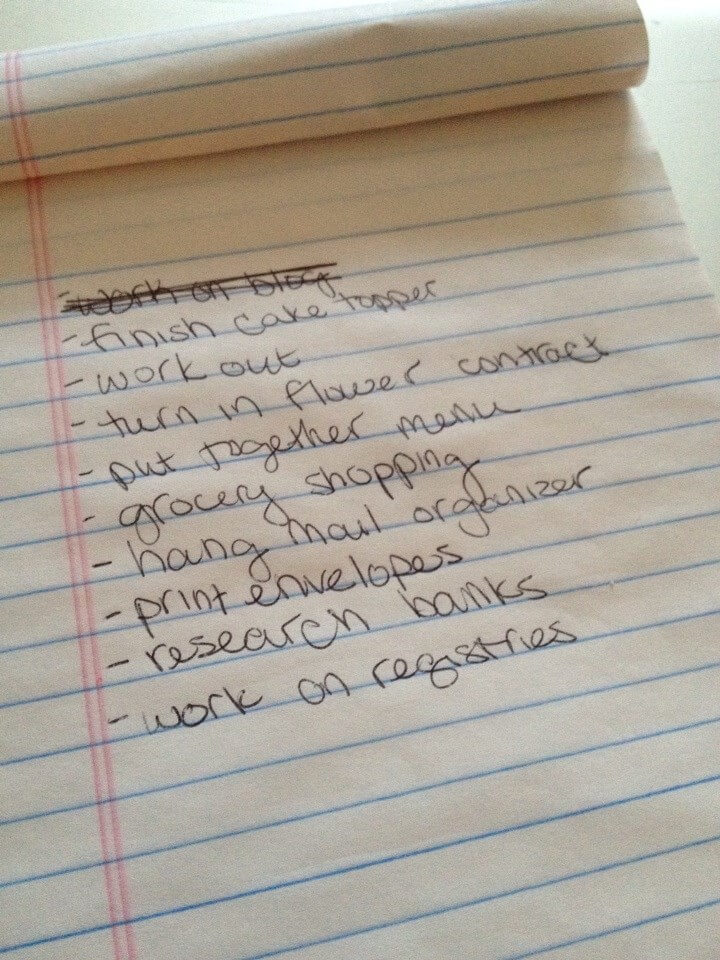 - work on blog
- finish cake topper
- work out
- turn in flower contract
- put together menu
- grocery shopping
- hang mail organizer
- print envelopes
- research banks
- work on registries